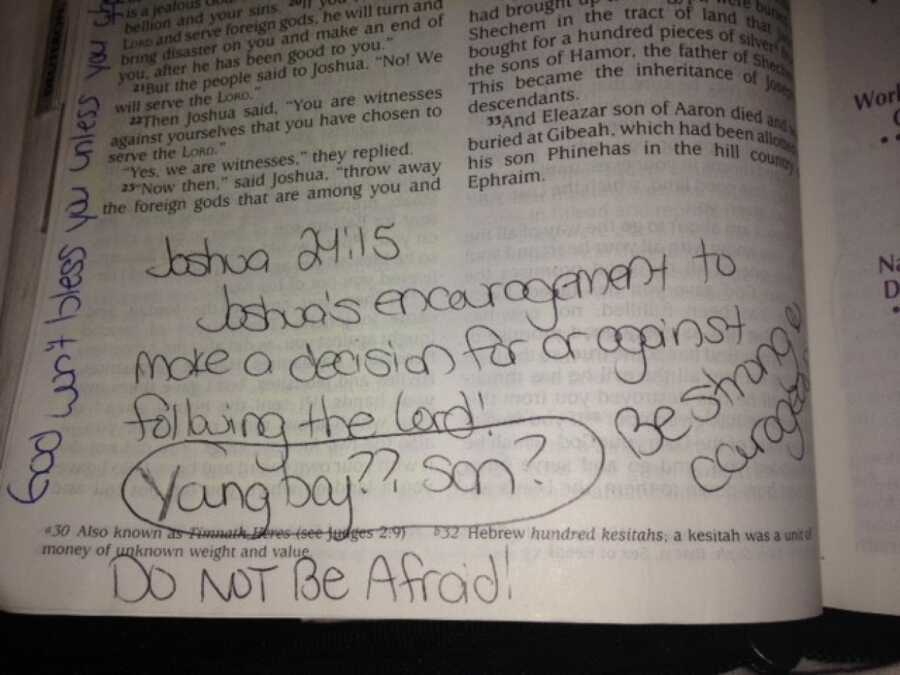 is a jealous God
bellion and your sins. 20If you
LORD and serve foreign gods, he will turn and
bring disaster on you and make an end of
you, after he has been good to you."
21But the people said to Joshua, "No! We
will serve the LORD."
22Then Joshua said, "You are witnesses
against yourselves that you have chosen to
serve the LORD."
"Yes, we are witnesses," they replied.
23"Now then," said Joshua, "throw away
the foreign gods that are among you and
had brought up
Shechem in the tract of land that
bought for a hundred pieces of silver
the sons of Hamor, the father of Shechem
This became the inheritance of
descendants.
33And Eleazar son of Aaron died and
buried at Gibeah, which had been allotted
his son Phinehas in the hill country
Ephraim.
God won't bless you unless you
Joshua 24:15
Joshua's encouragement to
make a decision for or against
following the Lord!
Young boy?? Son?
Be strong &
courageous
a30 Also known as Timnath Heres (see Judges 2:9) b32 Hebrew hundred kesitahs; a kesitah was a unit of
money of unknown weight and value.
DO NOT Be Afraid!